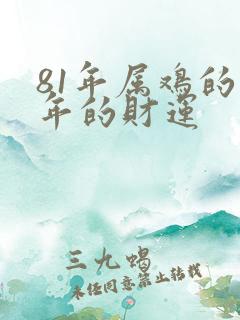 81年属鸡的
年的财运
三九蝎
未经同意禁止转载